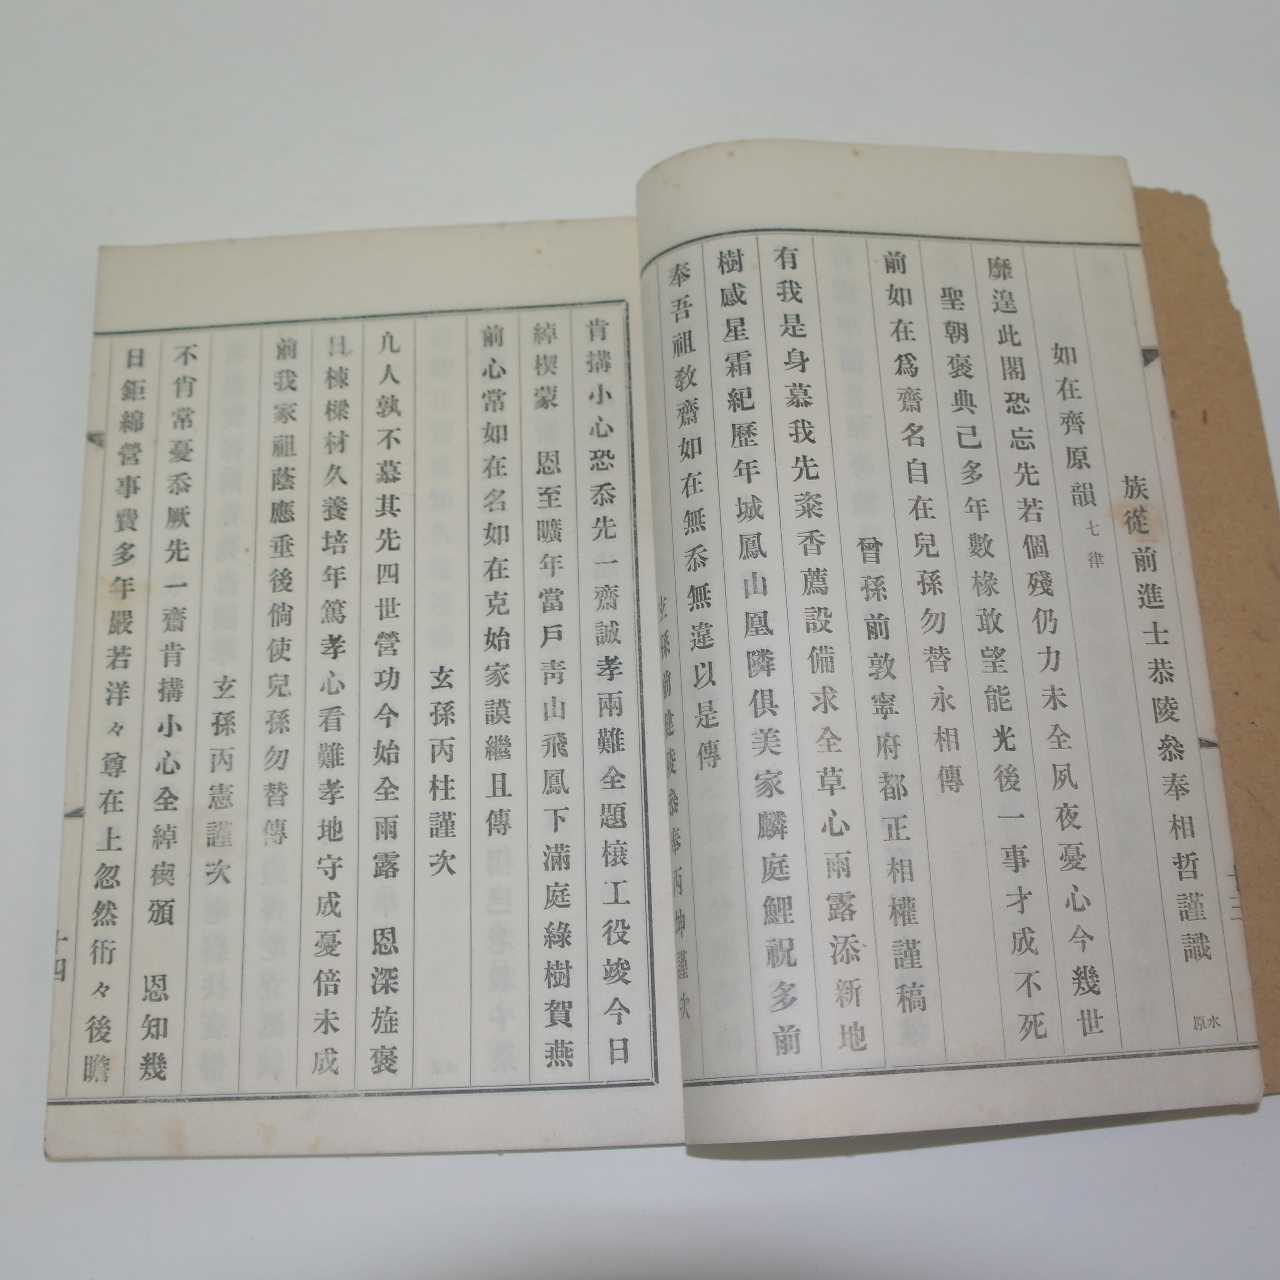 族從前進士恭陵叅奉相哲謹識
水原
如在齊原韻七律
靡遑此閣恐忘先若個殘仍力未全夙夜憂心今幾世
聖朝褒典己多年數椽敢望能光後一事才成不死
前如在爲齋名自在兒孫勿替永相傳
曾孫前敦寧府都正相權謹稿
有我是身慕我先粢香薦設備求全草心雨露添新地
樹感星霜紀歷年城鳳山凰隣俱美家麟庭鯉祝多前
奉吾祖敎齋如在無忝無違以是傳
玄孫前健陵叅奉丙坤謹次
肯搆小心恐忝先一齋誠孝兩難全題樑工役竣今日
綽楔蒙恩至曠年當戶靑山飛鳳下滿庭綠樹賀燕
前心常如在名如在克始家謨繼且傳
玄孫丙柱謹次
凡人孰不慕其先四世營功今始全雨露恩深旌褒
日棟樑材久養培年篤孝心看難孝地守成憂倍未成
前我家祖蔭應垂後倘使兒孫勿替傳
玄孫丙憲謹次
不肖常憂忝厥先一齋肯搆小心全綽楔頒恩知幾
日鉅綿營事費多年嚴若洋々尊在上忽然術々後瞻
十四